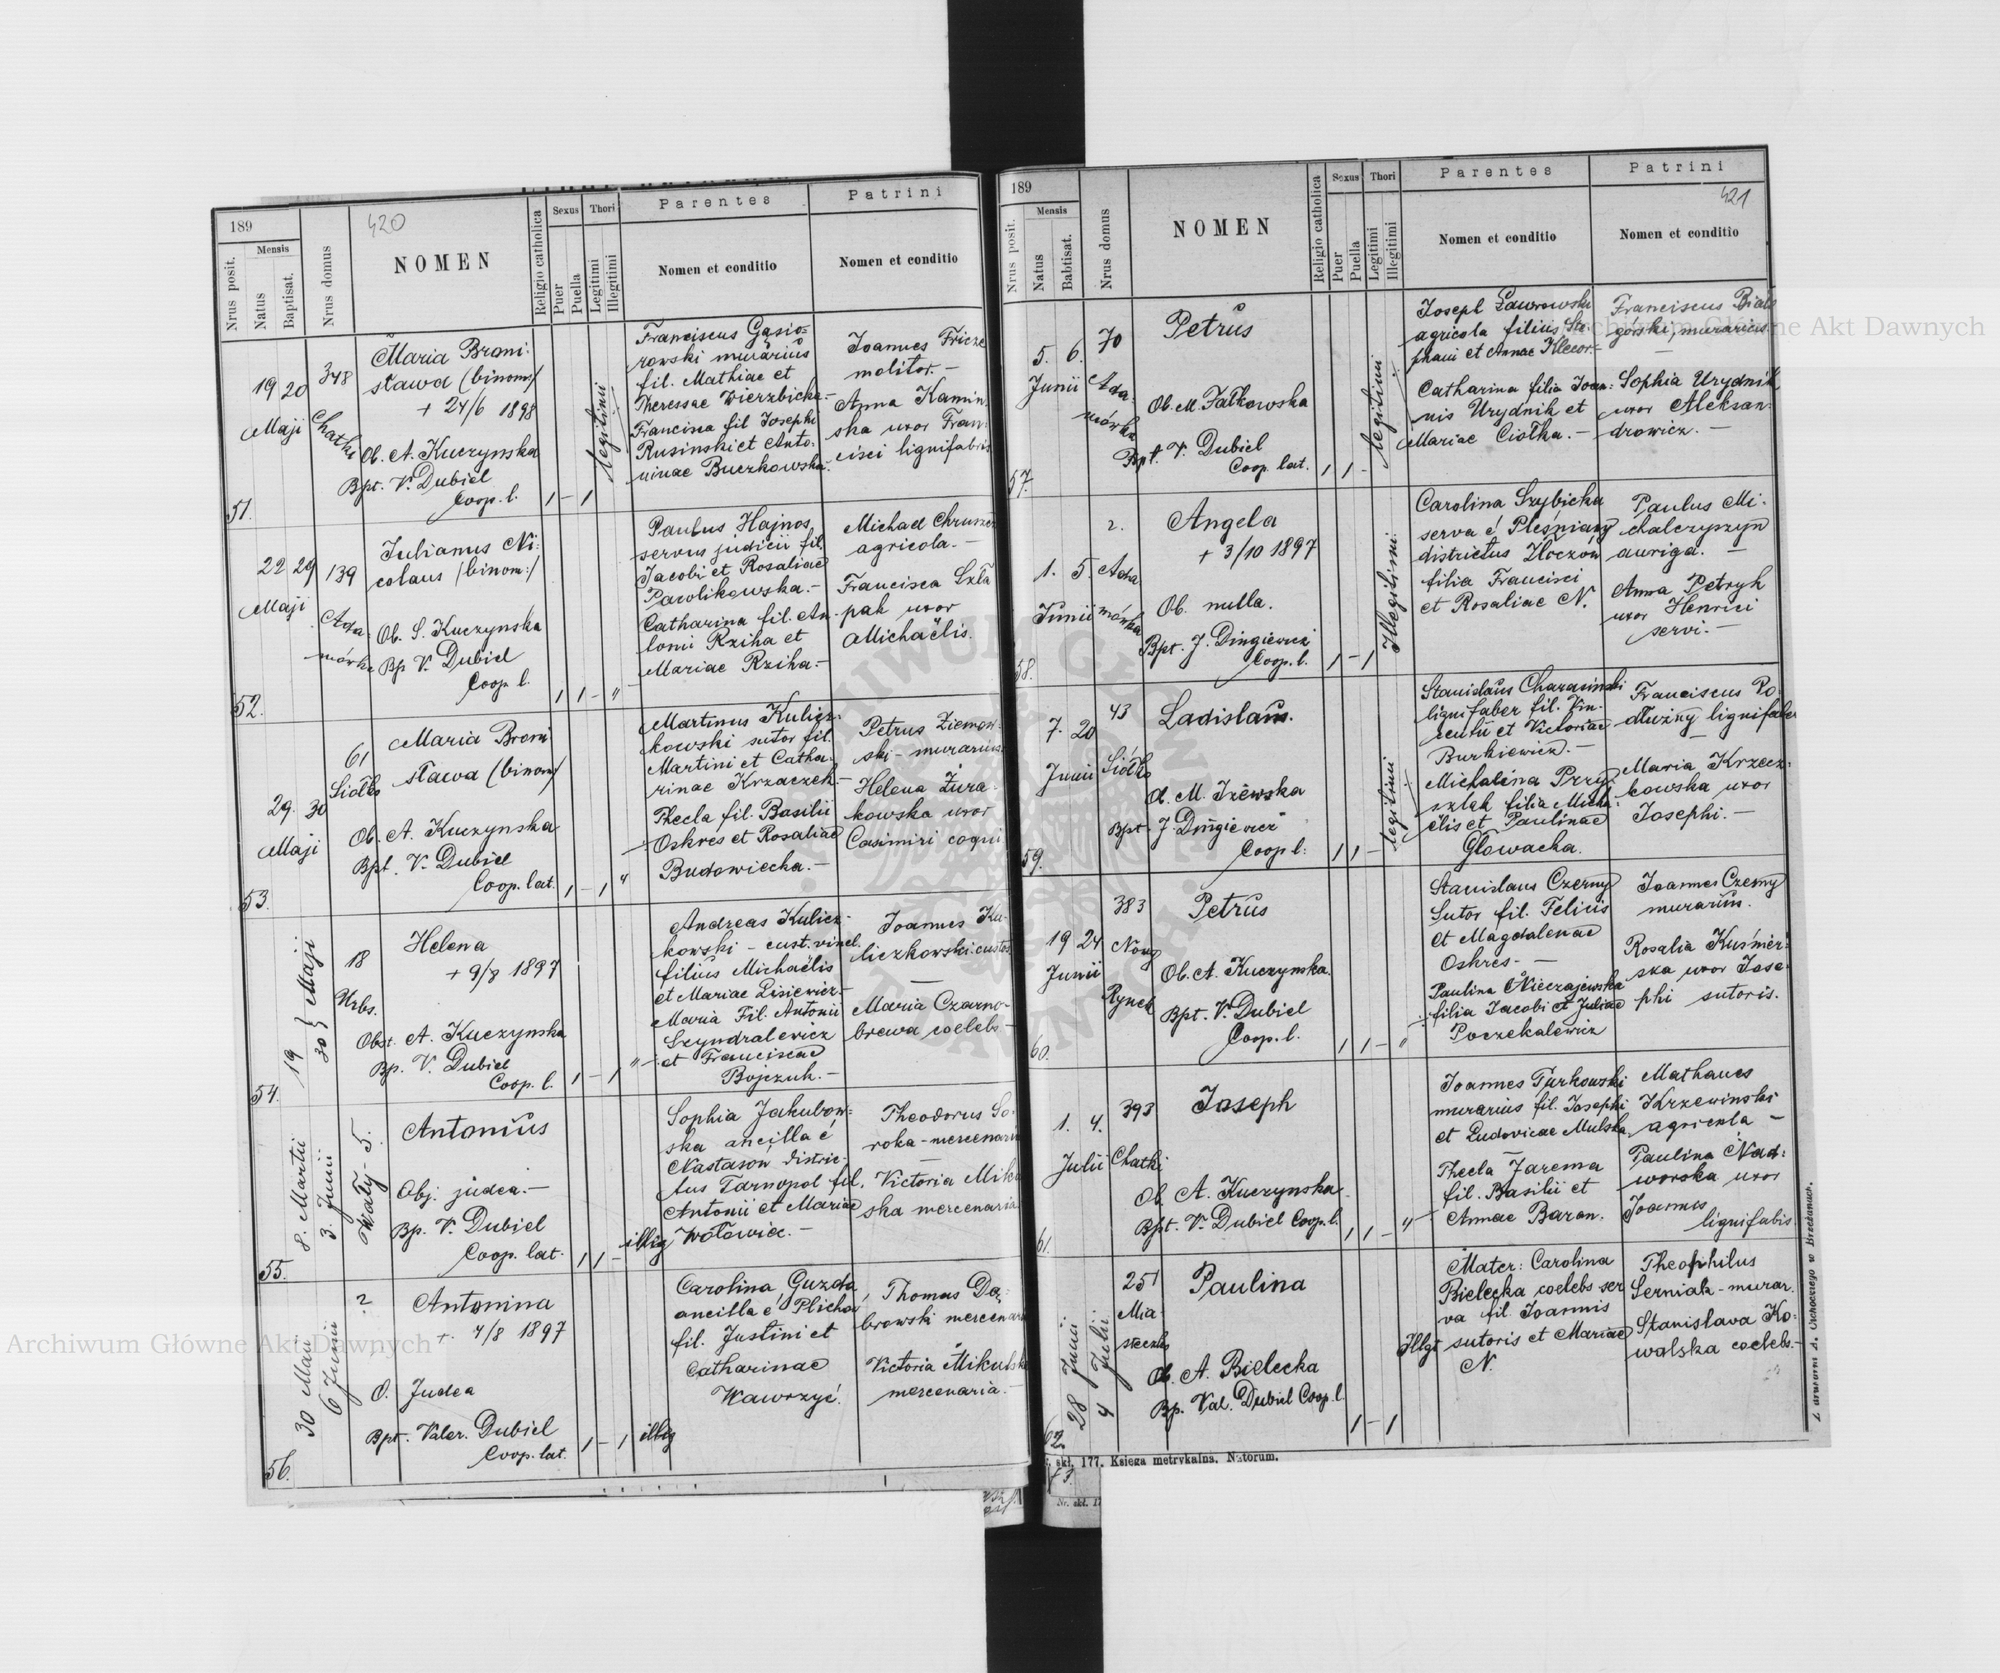 189
420
Mensis
Nrus posit.
Natus
Baptisat.
Nrus domus
NOMEN
Religio catholica
Sexus
Puer
Puella
Thori
Legitimi
Illegitimi
Parentes
Nomen et conditio
Patrini
Nomen et conditio
51.
19 20
Maji
348
Chatki
Maria Broni-
sława (binom:/
+ 24/6 1898
Ob. A. Kuczynska
Bpt. V. Dubiel
Coop. l.
1 – 1
legitimi
Franciscus Gąsio-
rowski murarius
fil. Mathiae et
Theressae Wierzbicka –
Francisca fil Josephi
Rusinski et Anto-
ninae Buczkowska –
Joannes Fricze
molitor. –
Anna Kamin-
ska uxor Fran-
cisci lignifabris
52.
22 29
Maji
139
Ada-
mówka
Julianus Ni-
colaus /binom:/
Ob. S. Kuczynska
Bp V. Dubiel
Coop. l.
1 1 – "
Paulus Hajnos
servus judicii fil.
Jacobi et Rosaliae
Pawlikowska. –
Catharina fil. An-
tonii Rziha et
Mariae Rziha. –
Michael
agricola. –
Francisca
pak uxor
Michaëlis.
53.
29. 30
Maji
61
Siołko
Maria Broni-
sława (binom/
Ob. A. Kuczynska
Bpt. V. Dubiel
Coop. lat.
1 – 1 "
Martinus Kulicz-
kowski sutor fil.
Martini et Catha-
rinae Krzaczek –
Thecla fil. Basilii
Oskres et Rosaliae
Budowiecka. –
Petrus Ziemow-
ski – murarius
Helena Żura-
kowska uxor
Casimiri coqui
54.
19
30 } Maji
18
Urbs.
Helena
+ 9/8 1897
Obst. A. Kuczynska
Bp. V. Dubiel
Coop. l.
1 – 1 "
Andreas Kulicz-
kowski – cust. vincl.
filius Michaëlis
et Mariae Lisiewicz –
Maria Fil. Antonii
Szyndralewicz
et Franciscae
Bojczuk. –
Joannes Ku-
liczkowski custos
Maria Czarno-
brewa coelebs –
55.
8. Martii
3. Junii
Wały 5.
Antonius
Obj. judea. –
Bp. V. Dubiel
Coop. lat.
1 1 –
illig
Sophia Jakubow-
ska ancilla é
Nastasow distric-
tus Tarnopol fil.
Antonii et Mariae
Wołowicz. –
Theodorus So-
roka – mercenarius
Victoria Mikul
ska mercenaria
56.
30 Maii
6 Junii
2
Antonina
+ 4/8 1897
O. Judea
Bpt. Valer. Dubiel
Coop. lat.
1 – 1
illig
Carolina Guzda
ancilla é Plichow
fil. Justini et
Catharinae
Wawrzyć.
Thomas Dą-
browski mercenarius
Victoria Mikulska
mercenaria. –
189
421
Mensis
Nrus posit.
Natus
Babtisat.
Nrus domus
NOMEN
Religio catholica
Sexus
Puer
Puella
Thori
Legitimi
Illegitimi
Parentes
Nomen et conditio
Patrini
Nomen et conditio
57.
5. 6.
Junii
70
Ada-
mówka
Petrus
Ob. M. Falkowska
Bpt. V. Dubiel
Coop. lat.
1 1 –
legitimi
Joseph Ławrowski
agricola filius Ste-
phani et Annae Klecor –
Catharina filia Joan-
nis Urydnik et
Mariae Ciołka. –
Franciscus Biało
górski, murarius.
Sophia Urydnik
uxor Aleksan-
drowicz. –
58.
1. 5.
Junii
2.
Ada
mówka
Angela
+ 3/10 1897
Ob. nulla.
Bpt. J. Dingiewicz
Coop. l.
1 – 1
Illegitimi
Carolina Szybicka
serva é Plesniany
districtus Złoczów
filia Francisci
et Rosaliae N.
Paulus Mi-
chalczyszyn
auriga. –
Anna Petryk
uxor Henrici
servi. –
59.
7. 20
Junii
43
Siółko
Ladislaus.
Ob. M. Iżewska
Bpt. J. Dingiewicz
Coop l.
1 1 –
legitimi
Stanislaus Charasinski
lignifaber fil. Vin-
centii et Victoriae
Burkiewicz. –
Michalina Przy-
szlak filia Micha-
ëlis et Paulinae
Głowacka.
Franciscus Po-
dłużny lignifaber
Maria Krzecz-
kowska uxor
Josephi. –
60.
19 24
Junii
383
Nowy
Rynek
Petrus
Ob. A. Kuczynska.
Bpt. V. Dubiel
Coop. l.
1 1 – "
Stanislaus Czerny
Sutor fil. Felicis
et Magdalenae
Oskres. –
Paulina Nieczajewska
filia Jacobi et Juliae
Poczekalewicz
Joannes Czerny
murarius.
Rosalia Kuśmier-
ska uxor Jose-
phi sutoris.
61.
1. 4.
Julii
393
Chatki
Joseph
Ob. A. Kuczynska
Bpt. V. Dubiel Coop. l.
1 1 – "
Joannes Turkowski
murarius fil. Josephi
et Ludovicae Mulska
Thecla Jarema
fil. Basilii et
Annae Baran.
Mathaeus
Krzewinski
agricola –
Paulina Nad-
worska uxor
Joannis
lignifabis
62.
28 Junii
4 Julii
251
Mia-
steczko
Paulina
Ob. A. Bielecka
Bp. Val. Dubiel Coop. l.
1 – 1
Illgt
Mater: Carolina
Bielecka coelebs ser
va fil. Joannis
sutoris et Mariae
N.
Theophilus
Serniak – murar.
Stanislava Ko-
walska coelebs. –
skł. 177. Księga metrykalna. Natorum.
Archiwum Główne Akt Dawnych
Archiwum Główne Akt Dawnych